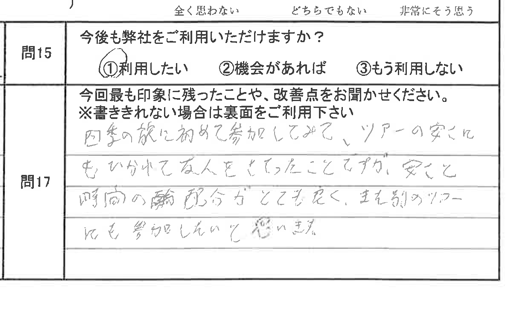 全く思わない どちらでもない 非常にそう思う
問15
今後も弊社をご利用いただけますか？
①利用したい ②機会があれば ③もう利用しない
問17
今回最も印象に残ったことや、改善点をお聞かせください。
※書ききれない場合は裏面をご利用下さい
四季の旅に初めて参加してみて、ツアーの安さに
もひかれて友人をさそったことですが、安さと
時間の配分がとても良く、また別のツアー
にも参加したいと思います